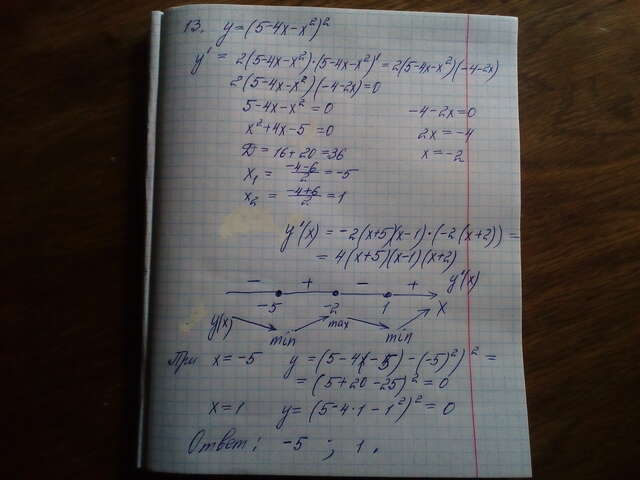 13. y=(5-4x-x²)²
y' = 2(5-4x-x²)·(5-4x-x²)' = 2(5-4x-x²)(-4-2x)
2(5-4x-x²)(-4-2x)=0
5-4x-x²=0 -4-2x=0
x²+4x-5=0 2x=-4
D=16+20=36 x=-2
x₁ = (-4-6)/2 = -5
x₂ = (-4+6)/2 = 1
y'(x) = -2(x+5)(x-1)·(-2(x+2)) =
= 4(x+5)(x-1)(x+2)
- + - + y'(x)
-5 -2 1 x
y(x) min max min
При x=-5 y=(5-4(-5)-(-5)²)² =
= (5+20-25)² = 0
x=1 y=(5-4·1-1²)² = 0
Ответ: -5 ; 1.